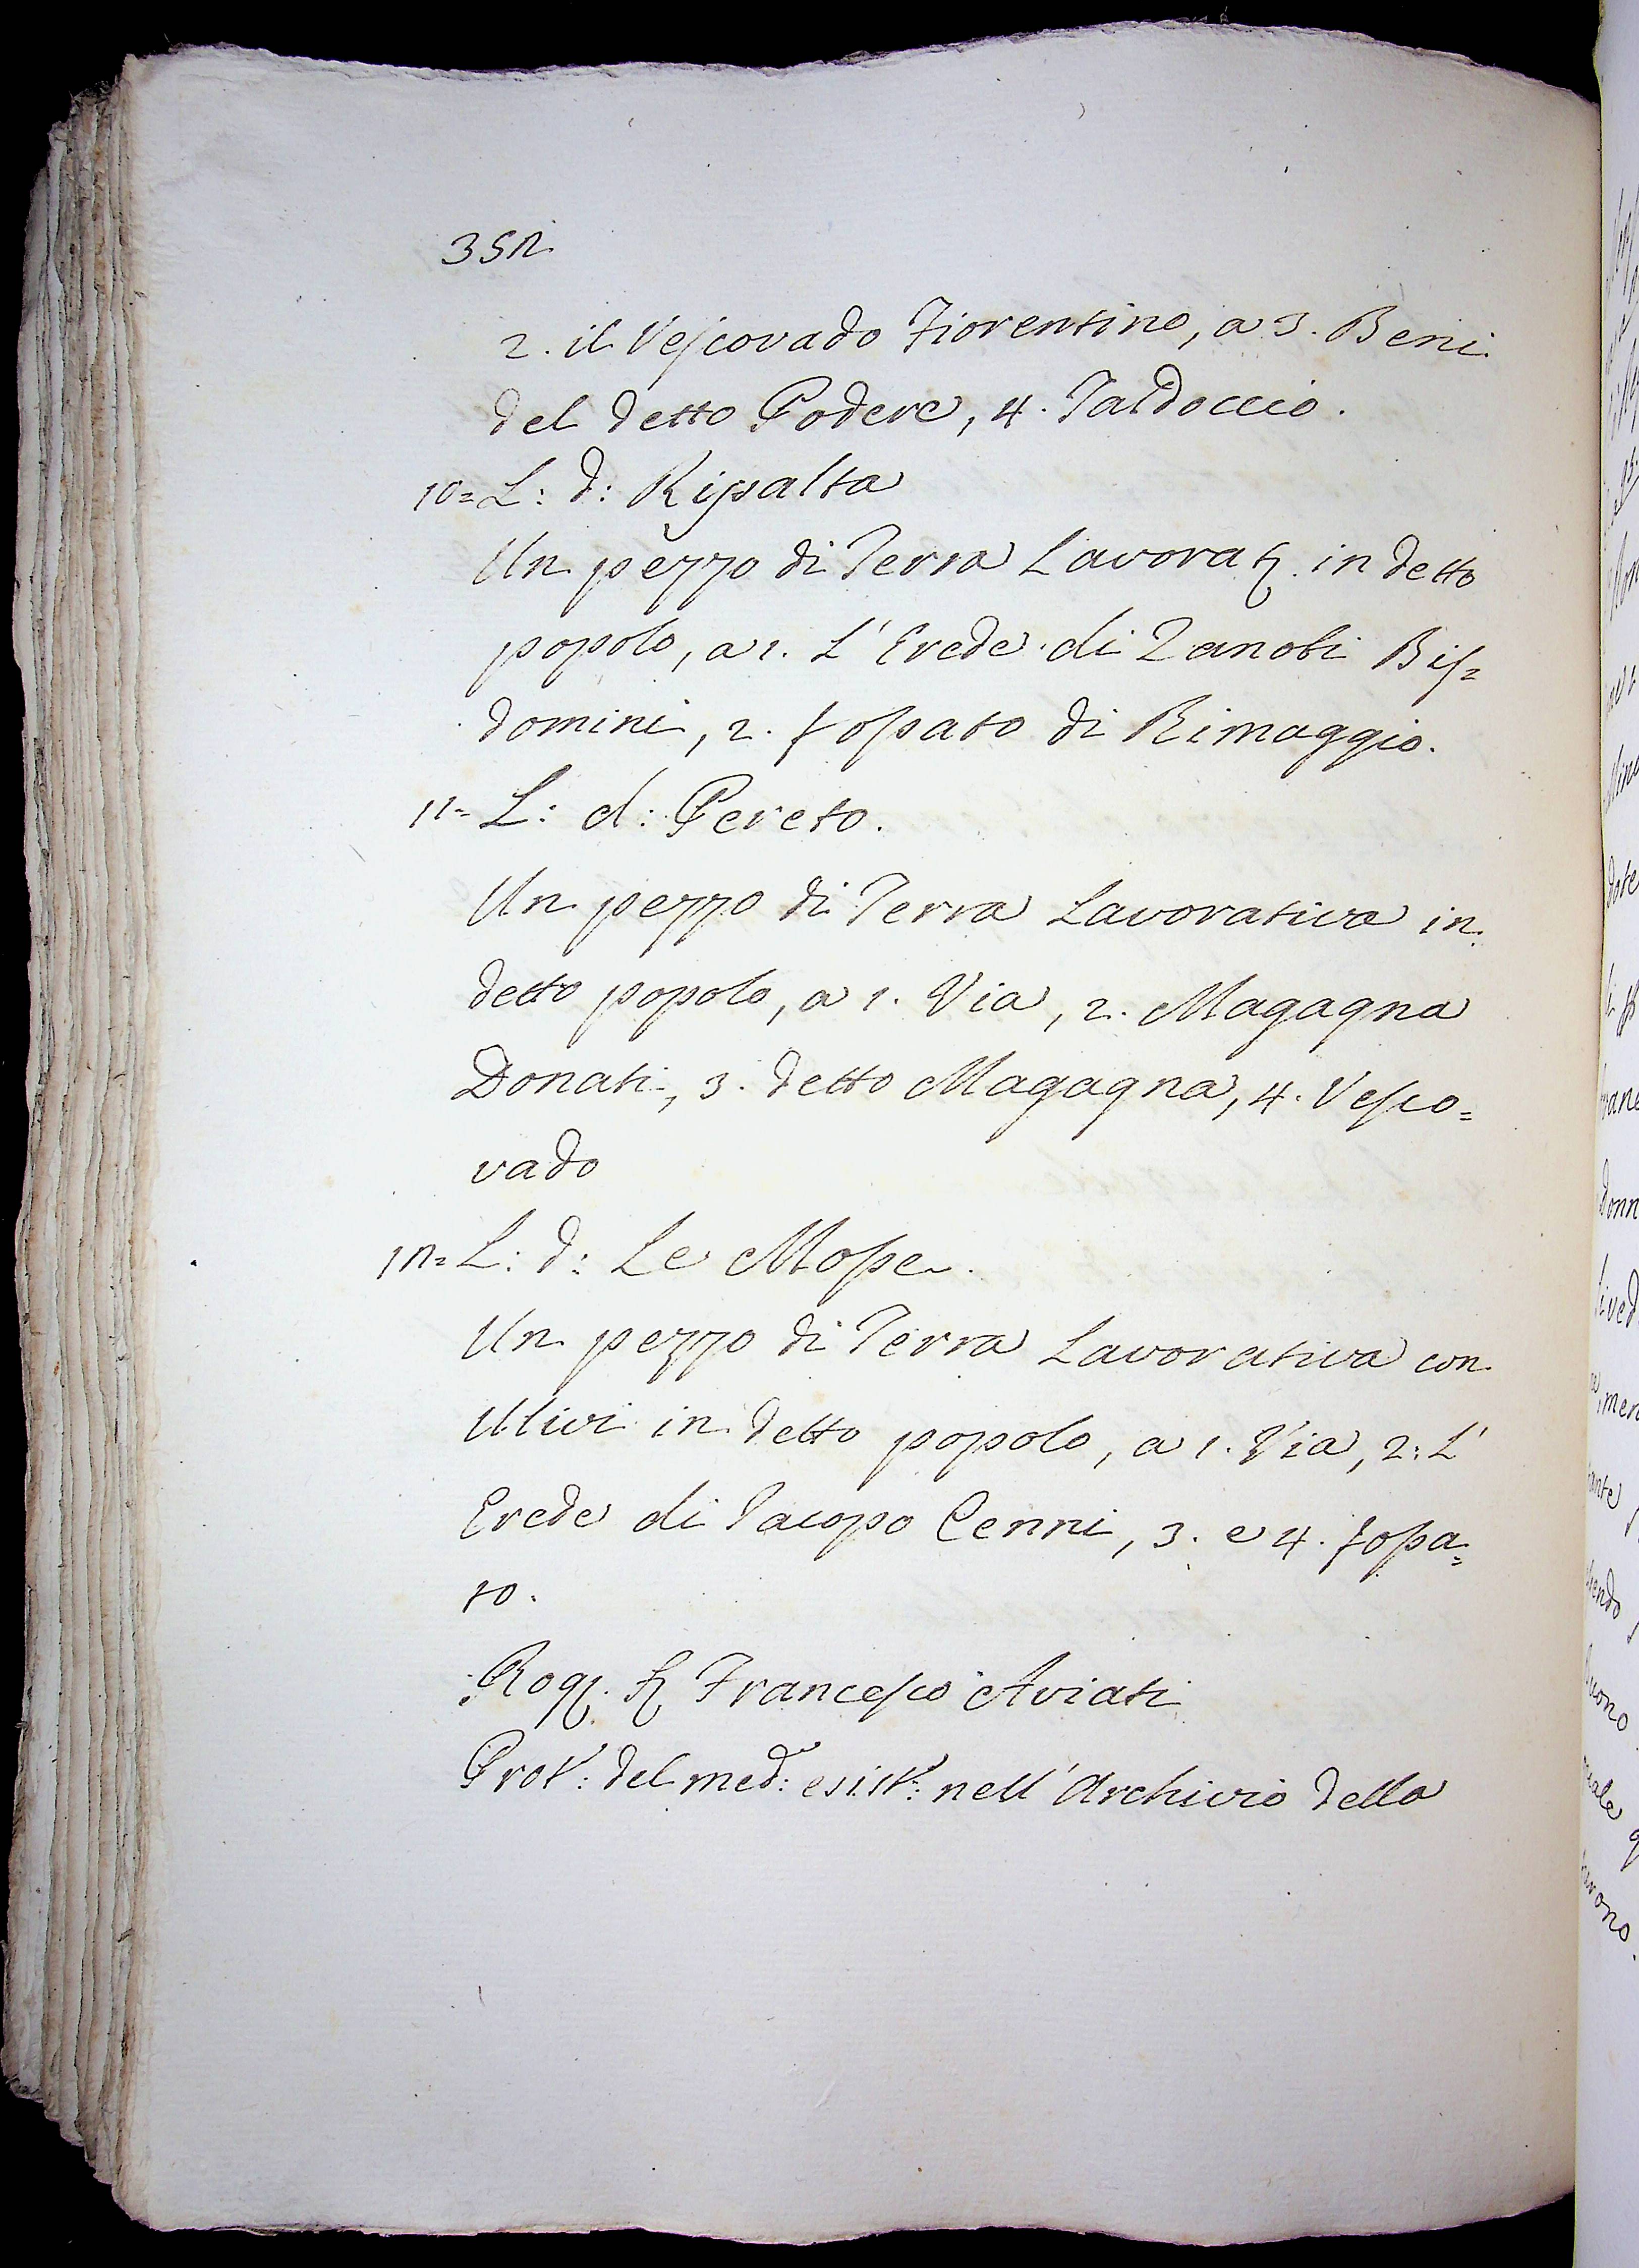 352
2. il Vescovado Fiorentino, a 3. Beni
del detto Podere, 4. Taldoccio.
10= L: d: Ripalta
Un pezzo di Terra Lavorat. in detto
popolo, a 1. L' Erede di Zanobi Bis=
domini, 2. fossato di Rimaggio.
11= L: d: Pereto.
Un pezzo di Terra Lavorativa in
detto popolo, a 1. Via, 2. Magagna
Donati, 3. detto Magagna, 4. Vesco=
vado
12= L: d: Le Mosse.
Un pezzo di Terra Lavorativa con
Ulivi in detto popolo, a 1. Via, 2: L'
Erede di Iacopo Cenni, 3. e 4. fossa=
to.
Rog. Francesco Aviati
Prot: del med: esist: nell' Archivio della